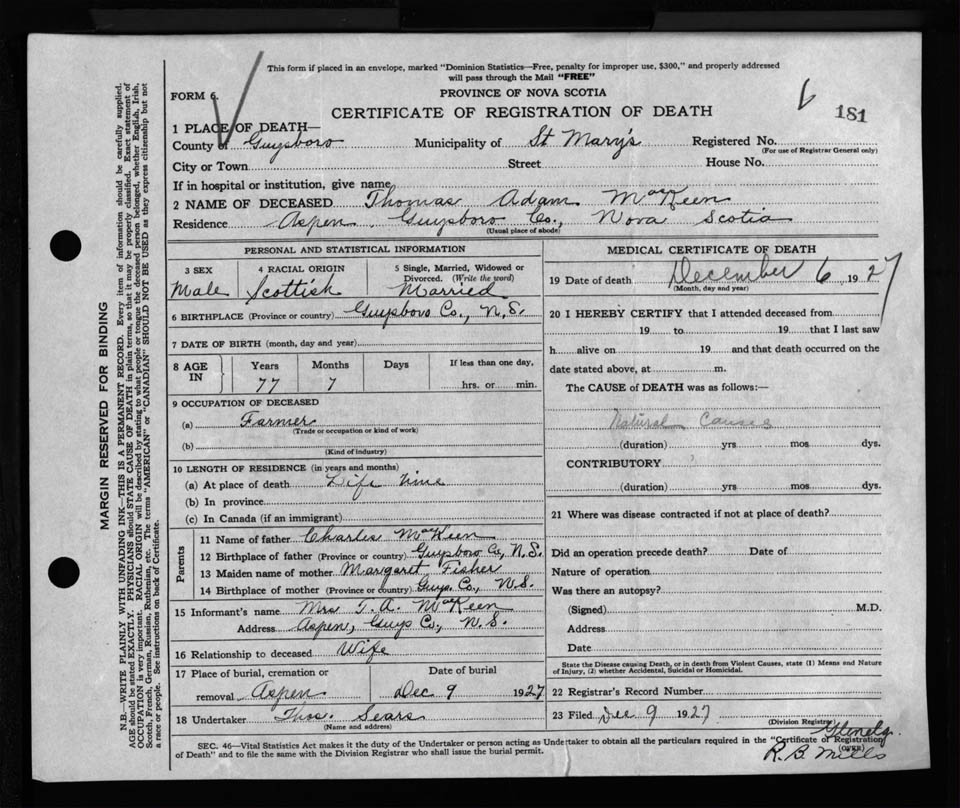 This form if placed in an envelope, marked "Dominion Statistics—Free, penalty for improper use, $300," and properly addressed
will pass through the Mail "FREE"
FORM 6.
PROVINCE OF NOVA SCOTIA
CERTIFICATE OF REGISTRATION OF DEATH
6
181
1 PLACE OF DEATH—
County of Guysboro Municipality of St Mary's Registered No.
(For use of Registrar General only)
City or Town Street House No.
If in hospital or institution, give name
2 NAME OF DECEASED Thomas Adam MacKeen
Residence Aspen, Guysboro Co., Nova Scotia
(Usual place of abode)
PERSONAL AND STATISTICAL INFORMATION
3 SEX
Male
4 RACIAL ORIGIN
Scottish
5 Single, Married, Widowed or
Divorced. (Write the word)
Married
6 BIRTHPLACE (Province or country) Guysboro Co., N.S.
7 DATE OF BIRTH (month, day and year)
8 AGE
IN
Years
77
Months
7
Days
If less than one day,
hrs. or min.
9 OCCUPATION OF DECEASED
(a) Farmer
(Trade or occupation or kind of work)
(b)
(Kind of industry)
10 LENGTH OF RESIDENCE (in years and months)
(a) At place of death Life time
(b) In province
(c) In Canada (if an immigrant)
Parents
11 Name of father Charles MacKeen
12 Birthplace of father (Province or country) Guysboro Co, N.S.
13 Maiden name of mother Margaret Fisher
14 Birthplace of mother (Province or country) Guys. Co., N.S.
15 Informant's name Mrs T. A. MacKeen
Address Aspen, Guys Co., N.S.
16 Relationship to deceased Wife
17 Place of burial, cremation or
removal Aspen
Date of burial
Dec 9 1927
18 Undertaker Thos. Sears
(Name and address)
MEDICAL CERTIFICATE OF DEATH
19 Date of death December 6, 1927
(Month, day and year)
20 I HEREBY CERTIFY that I attended deceased from
19 to 19 that I last saw
h alive on 19 and that death occurred on the
date stated above, at m.
The CAUSE of DEATH was as follows:—
Natural Causes
(duration) yrs mos dys.
CONTRIBUTORY
(duration) yrs mos dys.
21 Where was disease contracted if not at place of death?
Did an operation precede death? Date of
Nature of operation
Was there an autopsy?
(Signed) M.D.
Address
Date
State the Disease causing Death, or in death from Violent Causes, state (1) Means and Nature
of Injury, (2) whether Accidental, Suicidal or Homicidal.
22 Registrar's Record Number
23 Filed Dec 9 1927
(Division Registrar)
Glenelg.
R. B. Mills
SEC. 46—Vital Statistics Act makes it the duty of the Undertaker or person acting as Undertaker to obtain all the particulars required in the "Certificate of Registration
of Death" and to file the same with the Division Registrar who shall issue the burial permit.
(OVER)
MARGIN RESERVED FOR BINDING
N.B.—WRITE PLAINLY WITH UNFADING INK—THIS IS A PERMANENT RECORD. Every item of information should be carefully supplied.
AGE should be stated EXACTLY. PHYSICIANS should STATE CAUSE OF DEATH in plain terms, so that it may be properly classified. Exact statement of
OCCUPATION is very important. RACIAL ORIGIN will be described by stating to what people or tongue the deceased person belonged, whether English, Irish,
Scotch, French, German, Russian, Ruthenian, etc. The terms "AMERICAN" or "CANADIAN" SHOULD NOT BE USED as they express citizenship but not
a race or people. See instructions on back of Certificate.